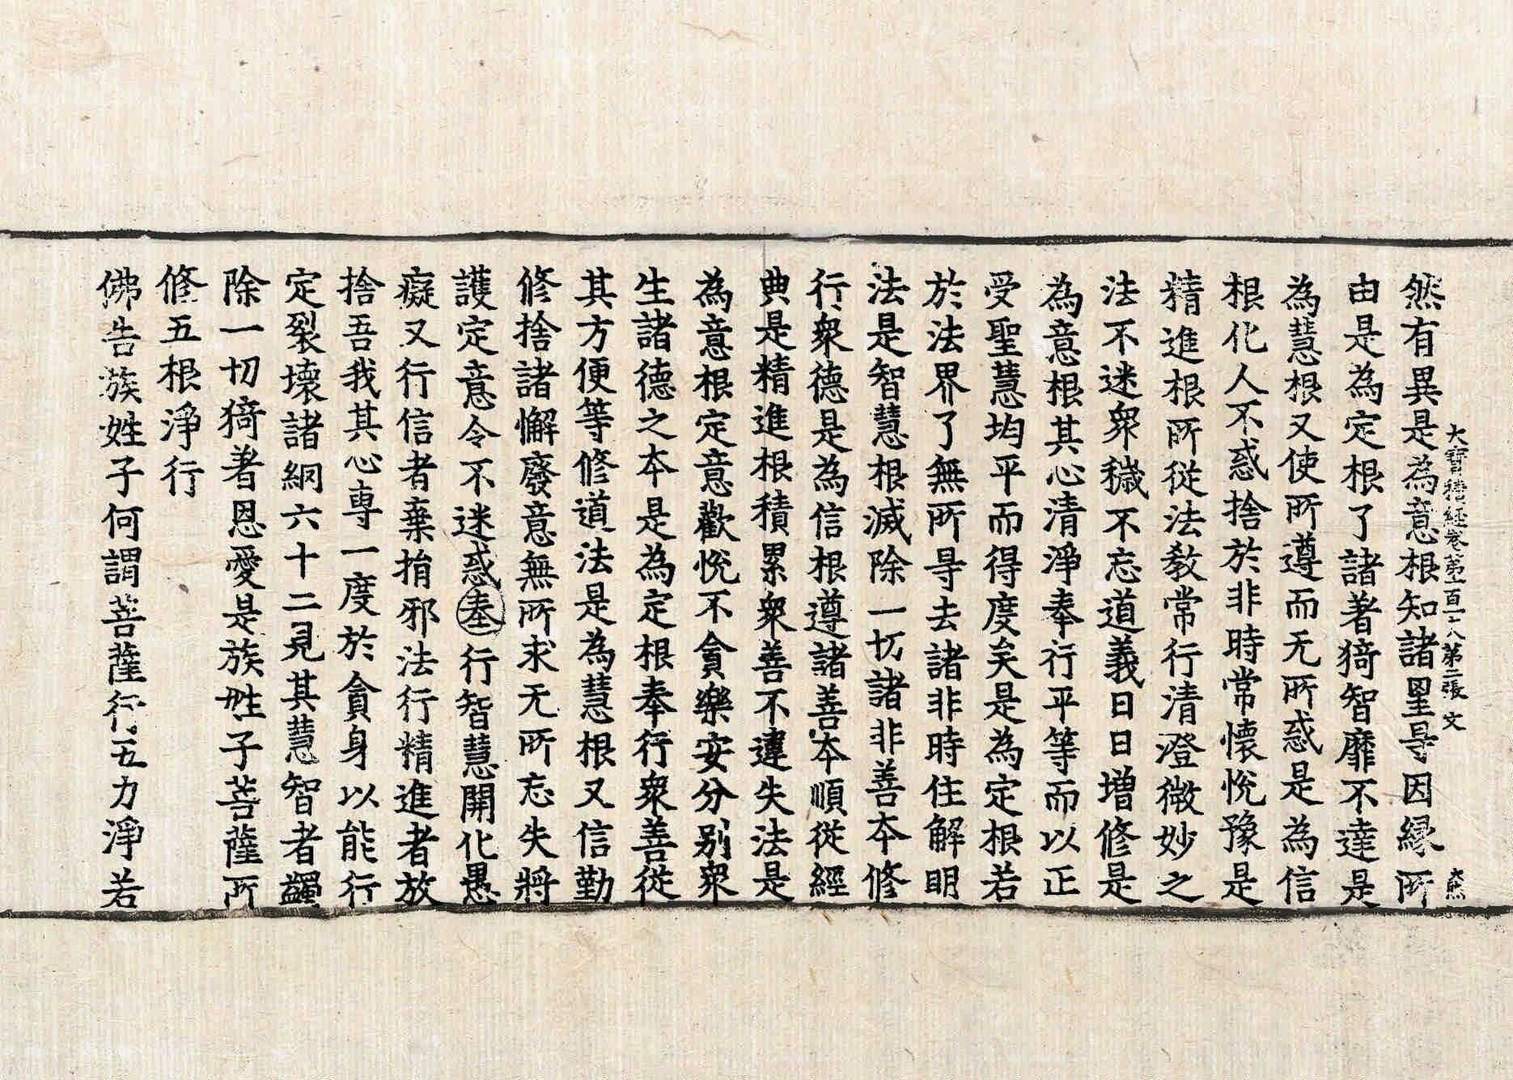 大寶積經卷第一百一十八第二張 文
然有異是為意根知諸罣㝵因緣所
由是為定根了諸著猗智靡不達是
為慧根又使所遵而无所惑是為信
根化人不惑捨於非時常懷悅豫是
精進根所從法教常行清澄微妙之
法不迷眾穢不忘道義日日增修是
為意根其心清淨奉行平等而以正
受聖慧均平而得度矣是為定根若
於法界了無所㝵去諸非時住解明
法是智慧根滅除一切諸非善本修
行眾德是為信根遵諸善本順從經
典是精進根積累眾善不違失法是
為意根定意歡悅不貪樂安分別眾
生諸德之本是為定根奉行眾善從
其方便等修道法是為慧根又信勤
修捨諸懈廢意無所求无所忘失將
護定意令不迷惑奉行智慧開化愚
癡又行信者棄捐邪法行精進者放
捨吾我其心專一度於貪身以能行
定裂壞諸網六十二見其慧智者蠲
除一切猗著恩愛是族姓子菩薩所
修五根淨行
佛告族姓子何謂菩薩行五力淨若